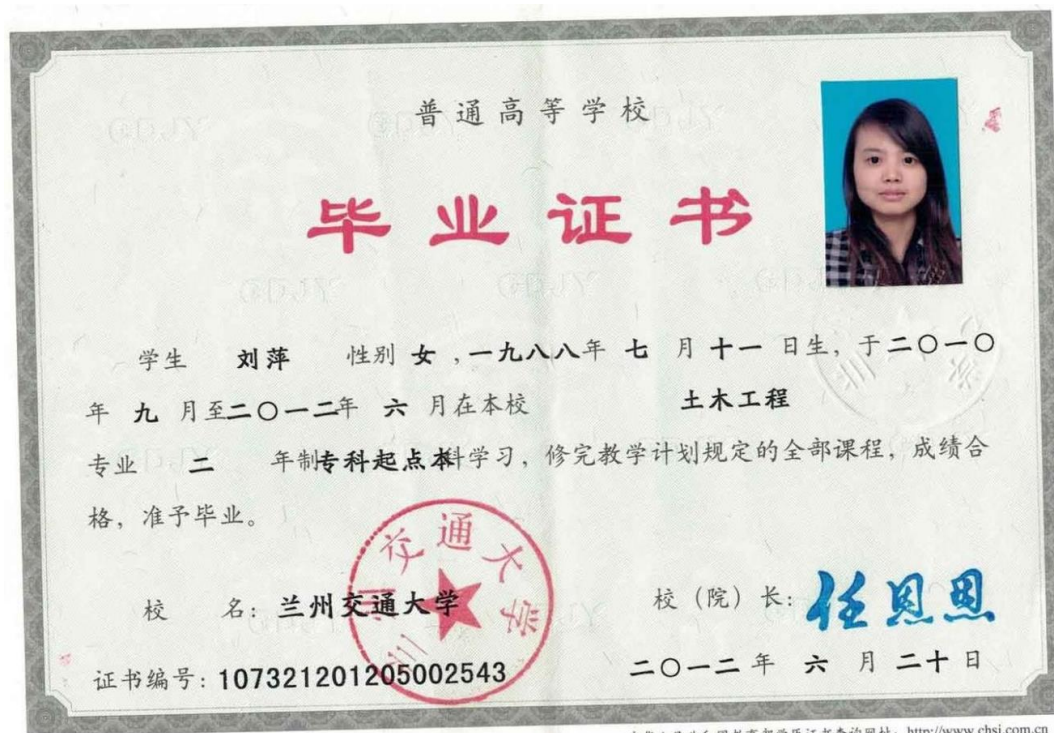 普通高等学校
毕业证书
学生 刘萍 性别 女 ，一九八八年 七 月 十一 日生，于二〇一〇
年 九 月至二〇一二年 六 月在本校 土木工程
专业 二 年制专科起点本科学习，修完教学计划规定的全部课程，成绩合
格，准予毕业。
兰州交通大学
校 名：兰州交通大学 校（院）长：任恩恩
证书编号：107321201205002543 二〇一二 年 六 月 二十 日
http://www.chsi.com.cn